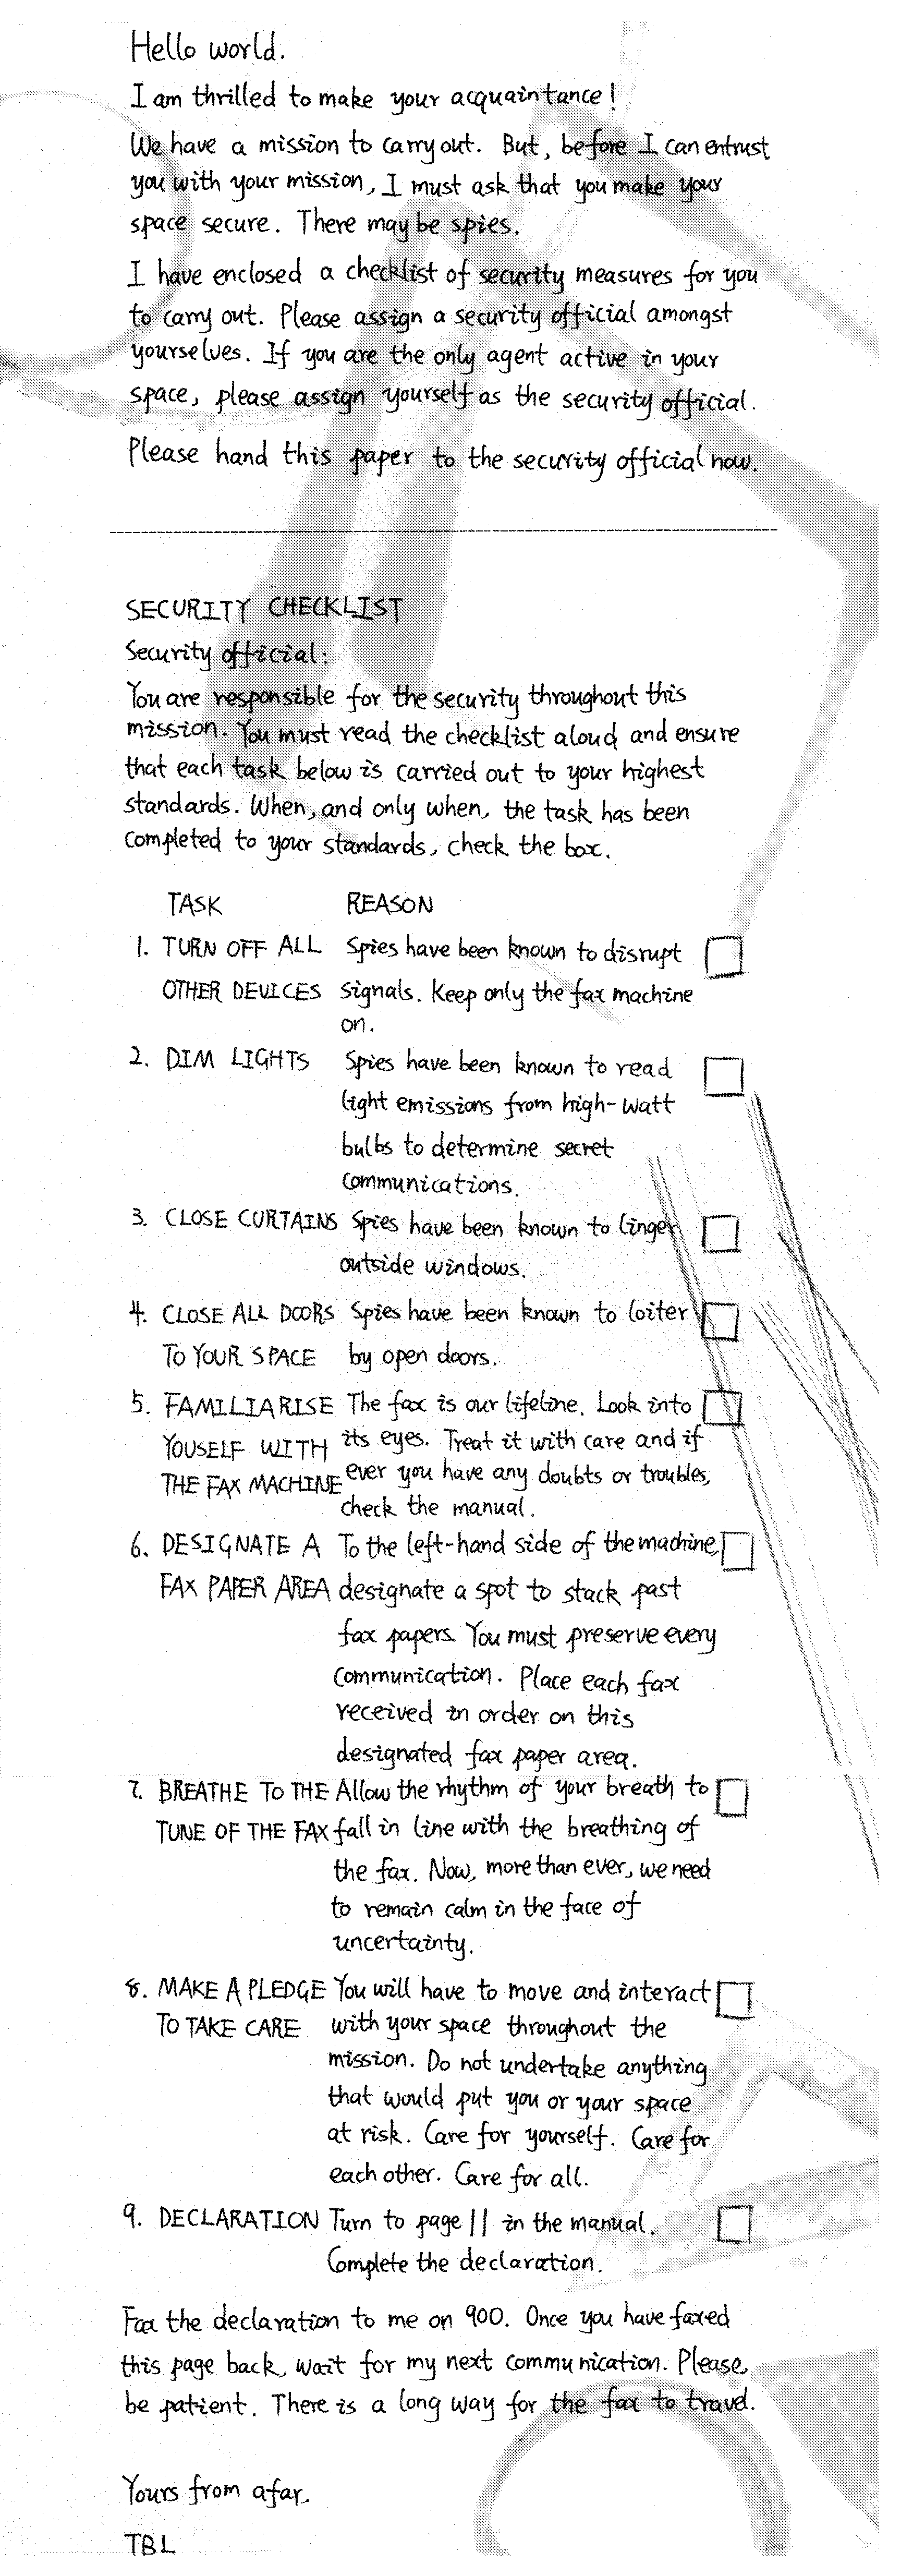 Hello world.
I am thrilled to make your acquaintance!
We have a mission to carry out. But, before I can entrust
you with your mission, I must ask that you make your
space secure. There may be spies.
I have enclosed a checklist of security measures for you
to carry out. Please assign a security official amongst
yourselves. If you are the only agent active in your
space, please assign yourself as the security official.
Please hand this paper to the security official now.
SECURITY CHECKLIST
Security official:
You are responsible for the security throughout this
mission. You must read the checklist aloud and ensure
that each task below is carried out to your highest
standards. When, and only when, the task has been
completed to your standards, check the box.
TASK REASON
1. TURN OFF ALL Spies have been known to disrupt
OTHER DEVICES signals. Keep only the fax machine
on.
2. DIM LIGHTS Spies have been known to read
light emissions from high-watt
bulbs to determine secret
communications.
3. CLOSE CURTAINS Spies have been known to linger
outside windows.
4. CLOSE ALL DOORS Spies have been known to loiter
TO YOUR SPACE by open doors.
5. FAMILIARISE The fax is our lifeline. Look into
YOUSELF WITH its eyes. Treat it with care and if
THE FAX MACHINE ever you have any doubts or troubles,
check the manual.
6. DESIGNATE A To the left-hand side of the machine,
FAX PAPER AREA designate a spot to stack past
fax papers. You must preserve every
communication. Place each fax
received in order on this
designated fax paper area.
7. BREATHE TO THE Allow the rhythm of your breath to
TUNE OF THE FAX fall in line with the breathing of
the fax. Now, more than ever, we need
to remain calm in the face of
uncertainty.
8. MAKE A PLEDGE You will have to move and interact
TO TAKE CARE with your space throughout the
mission. Do not undertake anything
that would put you or your space
at risk. Care for yourself. Care for
each other. Care for all.
9. DECLARATION Turn to page 11 in the manual.
Complete the declaration.
Fax the declaration to me on 900. Once you have faxed
this page back, wait for my next communication. Please,
be patient. There is a long way for the fax to travel.
Yours from afar.
TBL